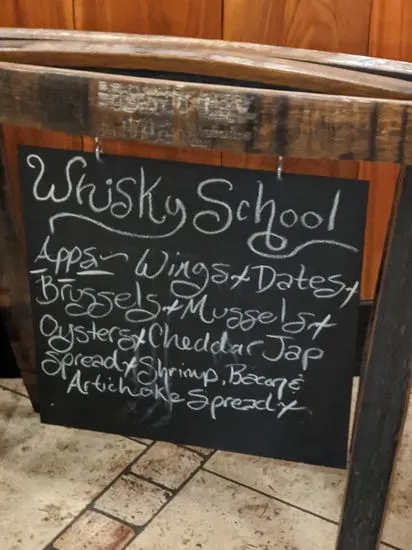 Whisky School
Apps~ Wings + Dates +
Brussels + Mussels +
Oysters + Cheddar Jap
Spread + Shrimp, Bacon &
Artichoke Spread +